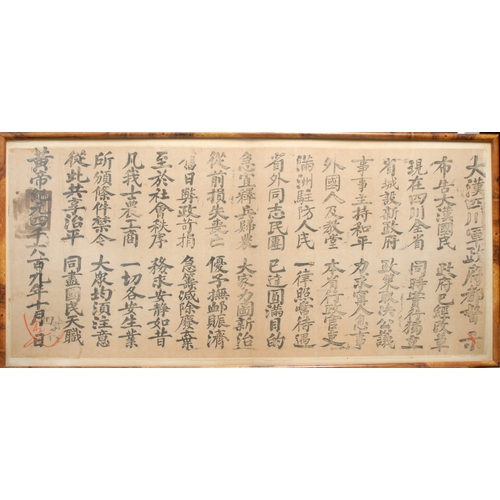 大漢四川軍政府都督 示
布告大漢國民 政府已經改革
現在四川全省 同時宣告獨立
省城設新政府 政策取決公議
事事主持和平 力求寧人息事
外國人及教堂 本省行政官吏
滿洲駐防人民 一律照常待遇
省外同志民團 已達圓滿目的
急宜釋兵歸農 大家力圖新治
從前損失死亡 優予撫卹賑濟
舊日興政苛捐 急籌減除廢棄
至於社會秩序 務求安靜如昔
凡我士農工商 一切各安生業
所頒條件禁令 大眾均須注意
從此共享治平 同盡國民天職
黃帝紀元四千六百九年十月 日